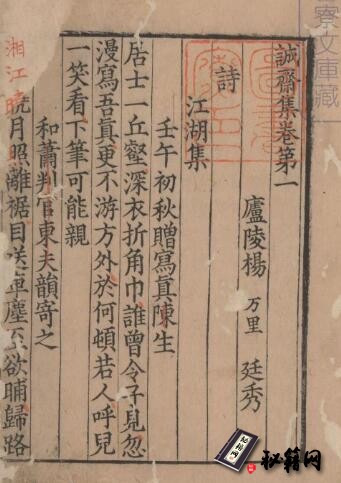 寮文庫藏
誠齋集卷第一
廬陵楊 万里 廷秀
詩
江湖集
壬午初秋贈寫真陳生
居士一丘壑深衣折角巾誰曾令子見忽
漫寫吾真更不游方外於何頓若人呼兒
一笑看下筆可能親
和蕭判官東夫韻寄之
湘江曉月照離裾目送車塵至欲晡歸路
秘籍网